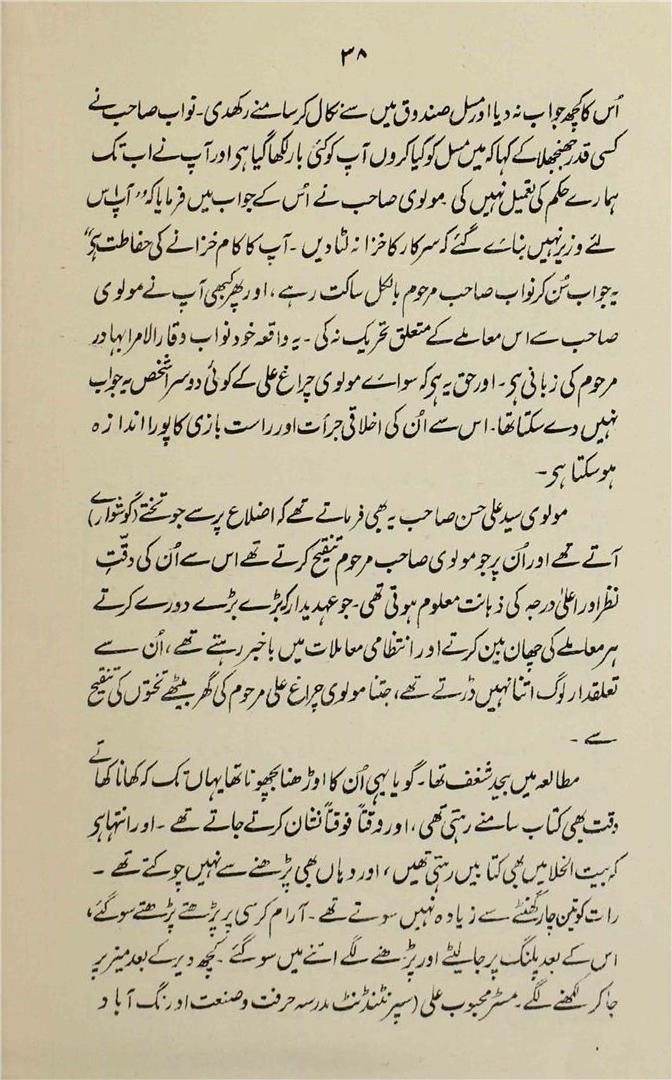 ۳۸
اُس کا کچھ جواب نہ دیا اور مسل صندوق میں سے نکال کر سامنے رکھدی۔ نواب صاحب نے
کسی قدر جھنجھلا کے کہا کہ میں مسل کو کیا کروں آپ کو کئی بار لکھا گیا ہی اور آپ نے اب تک
ہمارے حکم کی تعمیل نہیں کی۔ مولوی صاحب نے اُس کے جواب میں فرمایا کہ "آپ اس
لئے وزیر نہیں بنائے گئے کہ سرکار کا خزانہ لٹا دیں۔ آپ کا کام خزانے کی حفاظت ہی"
یہ جواب سُن کر نواب صاحب مرحوم بالکل ساکت رہے، اور پھر کبھی آپ نے مولوی
صاحب سے اس معاملے کے متعلق تحریک نہ کی۔ یہ واقعہ خود نواب وقار الامرا بہادر
مرحوم کی زبانی ہی۔ اور حق یہ ہی کہ سواے مولوی چراغ علی کے کوئی دوسرا شخص یہ جواب
نہیں دے سکتا تھا۔ اس سے اُن کی اخلاقی جرأت اور راست بازی کا پورا اندازہ
ہو سکتا ہی۔
مولوی سید علی حسن صاحب یہ بھی فرماتے تھے کہ اضلاع پر سے جو تختے (گوشوارے)
آتے تھے اور اُن پر جو مولوی صاحب مرحوم تنقیح کرتے تھے اس سے اُن کی دقّتِ
نظر اور اعلیٰ درجہ کی ذہانت معلوم ہوتی تھی۔ جو عہدیدار کہ بڑے بڑے دورے کرتے
ہر معاملے کی چھان بین کرتے اور انتظامی معاملات میں باخبر رہتے تھے، اُن سے
تعلقدار لوگ اتنا نہیں ڈرتے تھے، جتنا مولوی چراغ علی مرحوم کی گھر بیٹھے تختوں کی تنقیح
سے۔
مطالعہ میں بیحد شغف تھا۔ گویا یہی اُن کا اوڑھنا بچھونا تھا یہاں تک کہ کھانا کھاتے
وقت بھی کتاب سامنے رہتی تھی، اور وقتاً فوقتاً نشان کرتے جاتے تھے۔ اور انتہا ہی
کہ بیت الخلا میں بھی کتابیں رہتی تھیں، اور وہاں بھی پڑھنے سے نہیں چوکتے تھے۔
رات کو تین چار گھنٹے سے زیادہ نہیں سوتے تھے۔ آرام کرسی پر پڑھتے پڑھتے سو گئے،
اس کے بعد پلنگ پر جا لیٹے اور پڑھنے لگے اتنے میں سو گئے۔ کچھ دیر کے بعد میز پر
جا کر لکھنے لگے۔ مسٹر محبوب علی (سپرنٹنڈنٹ مدرسہ حرفت و صنعت اورنگ آباد